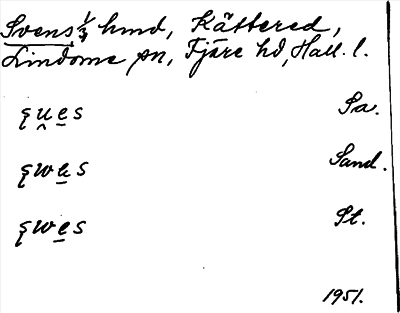 Svens 1/3 hmd, Kättered,
Lindome sn, Fjäre hd, Hall. l.
s̨u̯e̲s Sa.
s̨wa̲s Sand.
s̨we̲s St.
1951.